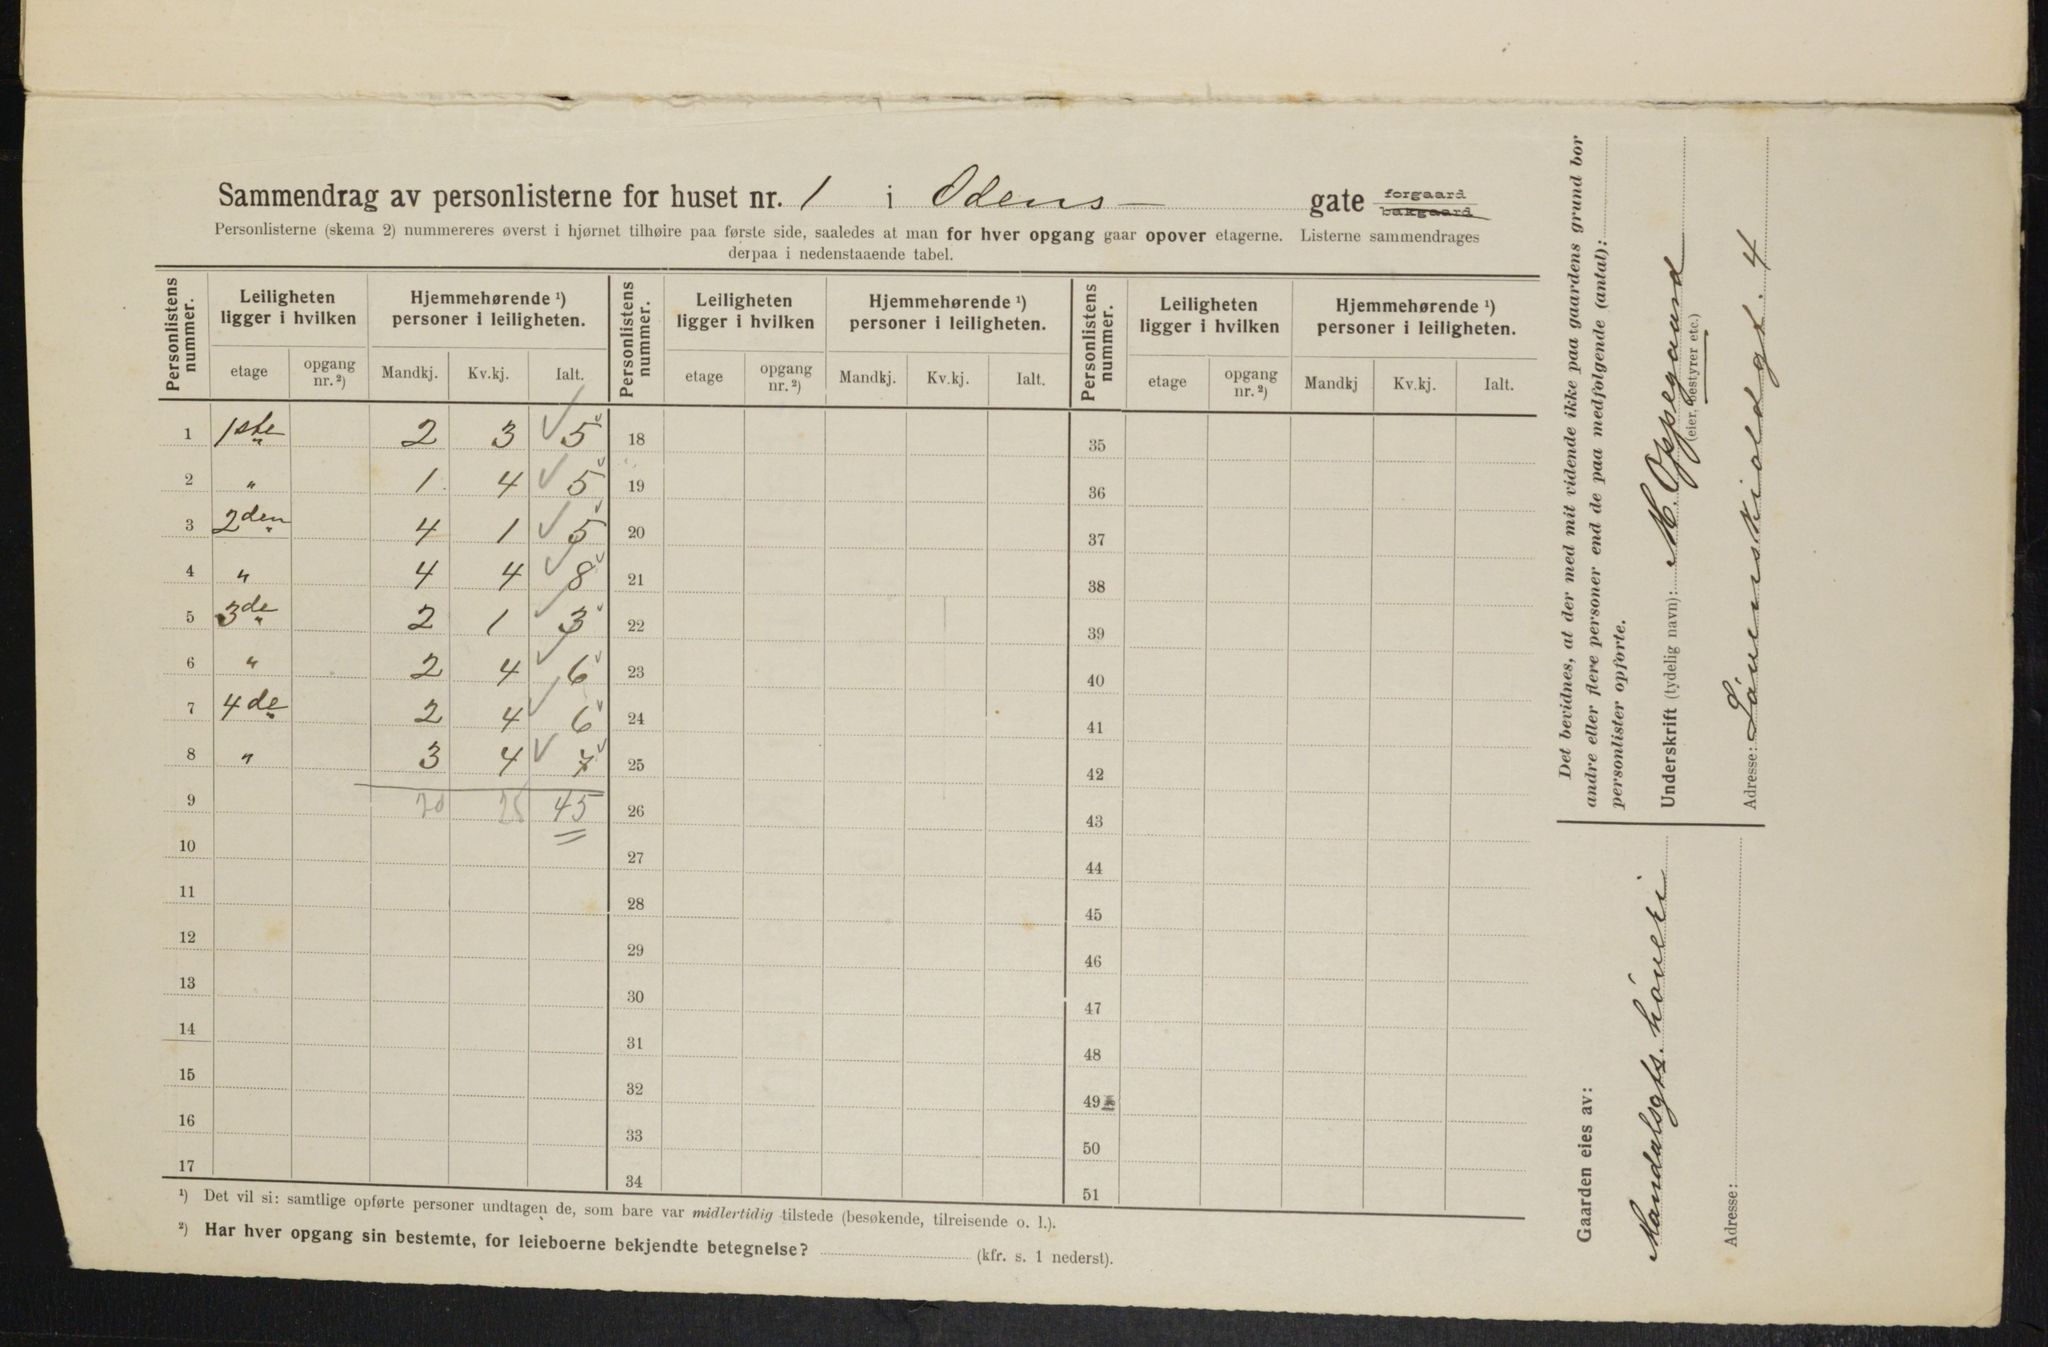 Sammendrag av personlisterne for huset nr. 1 i Odens — gate forgaard bakgaard
Personlisterne (skema 2) nummereres øverst i hjørnet tilhøire paa første side, saaledes at man for hver opgang gaar opover etagerne. Listerne sammendrages
derpaa i nedenstaaende tabel.
Personlistens nummer. Leiligheten ligger i hvilken Hjemmehørende ¹) personer i leiligheten. Personlistens nummer. Leiligheten ligger i hvilken Hjemmehørende ¹) personer i leiligheten. Personlistens nummer. Leiligheten ligger i hvilken Hjemmehørende ¹) personer i leiligheten.
etage opgang nr. ²) Mandkj. Kv.kj. Ialt. etage opgang nr. ²) Mandkj. Kv.kj. Ialt. etage opgang nr. ²) Mandkj Kv.kj. Ialt.
1 1ste 2 3 5 18 35
2 " 1 4 5 19 36
3 2den 4 1 5 20 37
4 " 4 4 8 21 38
5 3de 2 1 3 22 39
6 " 2 4 6 23 40
7 4de 2 4 6 24 41
8 " 3 4 7 25 42
9 20 25 45 26 43
10 27 44
11 28 45
12 29 46
13 30 47
14 31 48
15 32 49
16 33 50
17 34 51
¹) Det vil si: samtlige opførte personer undtagen de, som bare var midlertidig tilstede (besøkende, tilreisende o. l.).
²) Har hver opgang sin bestemte, for leieboerne bekjendte betegnelse? (kfr. s. 1 nederst).
Det bevidnes, at der med mit vidende ikke paa gaardens grund bor
andre eller flere personer end de paa medfølgende (antal):
personlister opførte.
Underskrift (tydelig navn): M. Oppegaard
(eier, bestyrer etc.)
Adresse: Løvenskioldgt. 4
Gaarden eies av:
Mandalsgts.
Adresse: